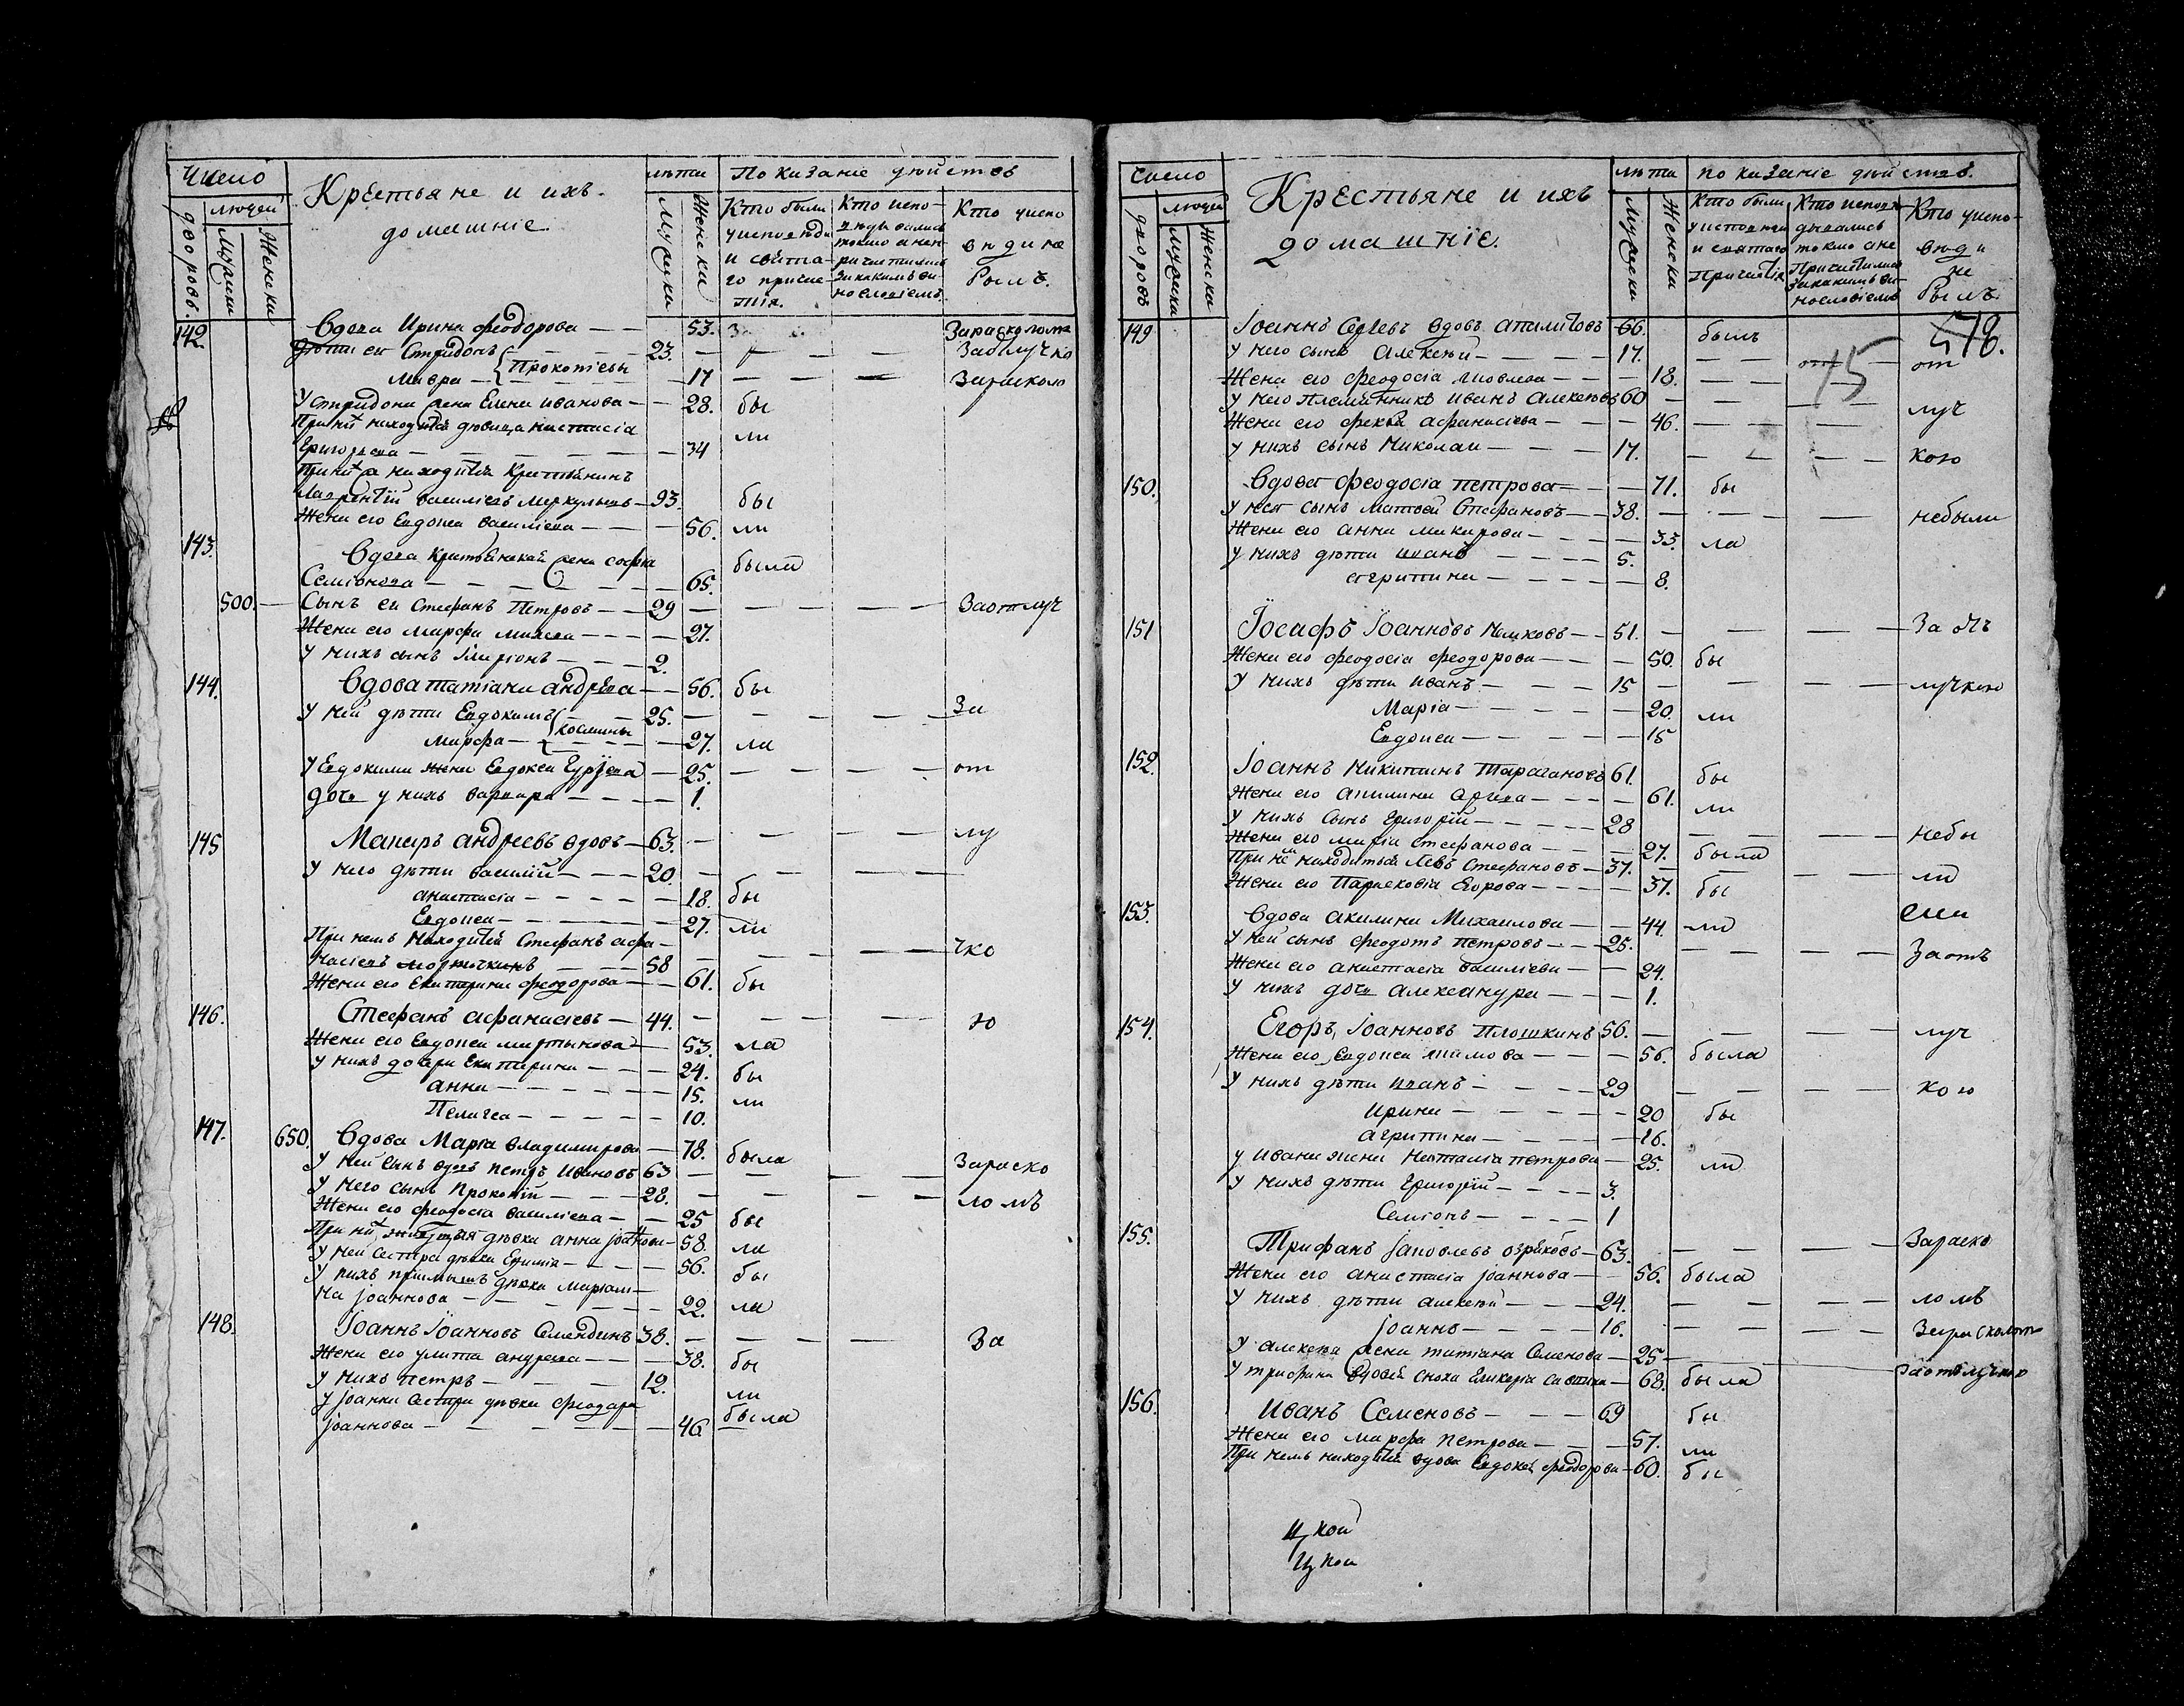 Число
людей
дворовъ.
Мужска
Женска
Крестьяне и ихъ
домашніе
лѣта
Мужска
Женска
Показаніе дѣйствъ
Кто были
у исповѣди
и свята-
го прича-
тія.
Кто испо-
вѣдывались
токмо а неп-
ричастились
За какимъ ви-
нословіемъ.
Кто у испо
вѣди не
былъ.
142. Вдова Ирина феодорова — — 53. Зарасколомъ
дѣти ея Спридонъ 23. — — — — Заотлучко
Прокопіевы
Мавра — 17 — — — Зараскол
У спридона жена Елена иванова — — 28. бы
При ней находится дѣвица настасіа ли
Григорьева — — — — — 34
При нихъ находится Крестьянинъ
Лаврентій василіевъ меркульевъ — 93. бы
Жена его Евдокса василіева — — — 56. ли
143. Вдова Крестьянская жена софья была
Семіонова — — — — — 65.
500. — Сынъ ея Стефанъ Петровъ — — 29 — — — — Заотлуч
Жена его марфа — — — — 27.
У нихъ сынъ Иларіонъ — — — 2.
144. Вдова татіана андреева — — 56. бы
У ней дѣти Евдокимъ — — 25. — — — — За
косьмины
марфа — 27. ла
У Евдокима жена Евдокса Гуріева — 25. — — — — от
дочь у нихъ варвара — — — — 1.
145 Макаръ андреевъ вдовъ — 63. — — — — лу
У него дѣти василій — — — 20. — — — —
анастасіа — — — — — 18. бы
Евдокса — — — — — 27. ли
При немъ находится Стефанъ афа-
насіевъ — — 58 — — — — чко
Жена его Екатерина феодорова — — 61. бы
146. Стефанъ афанасіевъ — 44. — — — — ю
Жена его Евдокса мартынова — 53. ла
У нихъ дочери Екатерина — — — 24. бы
анна — — — — — 15. ли
Пелагеа — — — — — 10.
147. 650. Вдова Маріа владимирова — 78. была
У ней сынъ вдовъ петръ Ивановъ 63 — — — — Зараско
У него сынъ Прокопій — — — 28. — — — — ломъ
Жена его феодосіа василіева — — 25 бы
При ней живущая дѣвка анна іоаннова — 58. ла
У ней сестра дѣвка Ефиміа — — — — 56. бы
У нихъ пріимышъ дѣвка Маріам-
на іоаннова — — — — — 22. ла
148. Іоаннъ Іоанновъ Семендинъ 38. — — — — За
Жена его улита андреева — — — 38. бы
У нихъ петръ — — — — 12. ли
У іоанна сестра дѣвка феодора
іоаннова — — — — — — 46 была
Число
людей
дворовъ
Мужска
Женска
Крестьяне и ихъ
домашніе.
лѣта
Мужска
Женска
показаніе дѣйствъ.
Кто были
у исповѣди
и святаго
Причастія
Кто исповѣ-
дывались
токмо а не
Причастились
За какимъ ви-
нословіемъ
Кто у испо-
вѣди
не
былъ.
478.
15
149 Іоаннъ Сергѣевъ вдовъ 66. былъ
У него сынъ Алексѣй — — — — 17. — — от — от
Жена его феодосіа яковлева — — — 18. — — — —
У него племянникъ иванъ алексѣевъ 60 — — — — луч
Жена его фекла афанасіева — — — — 46. — — — —
У нихъ сынъ Николаи — — — 17. — — — — кою
150. Вдова феодосіа петрова — — — 71. бы
У нея сынъ матвей Стефановъ — — 38. — — — — небыли
Жена его анна макарова — — — — 33. ла
У нихъ дѣти иванъ — — — — 5.
агрипина — — — — — 8.
151 Іосафъ Іоанновъ — — 51. — — — — За отъ
Жена его феодосіа феодорова — — — 50. бы
У нихъ дѣти иванъ — — — 15 — — — — лучкою
Маріа — — — — — 20. ли
Евдокса — — — — — 15
152. Іоаннъ Никитинъ Таракановъ 61. бы
Жена его акилина — — — — 61. ли
У нихъ сынъ Григорій — — — — 28 — — — — небы
Жена его маріа стефанова — — — — 27. была
При ней находится Левъ Стефановъ — 37. — — — — ли
Жена его Парасковіа Егорова — — — — 37. бы
153. Вдова акилина Михаилова — — 44. ла
У ней сынъ феодотъ петровъ — — — 25. — — — — Заотъ
Жена его анастасіа василіева — — 24.
У нихъ дочь александра — — — 1.
154. Егоръ, Іоанновъ Плошкинъ 56. — — — — луч
Жена его Евдокса — — — 56. была
У нихъ дѣти иванъ — — — — 29 — — — — кою
ирина — — — — — 20 бы
агрипина — — — — — 16.
у ивана жена Наталіа петрова — 25. ли
У нихъ дѣти Григорій — — — — 3.
Семіонъ — — — — 1
155. Трифанъ Іаковлевъ — 63. — — — — Зараско
Жена его анастасіа іоаннова — — 56. была
У нихъ дѣти алексѣй — — — 24. — — — — ломъ
Іоаннъ — — — — 16. — — — — Зараскалом
У алексѣя жена татіана Семенова — 25 — Заотлучкою
У трифана вдовая сноха Гликеріа савина — 68. была
156. Иванъ Семеновъ — — — 69 бы
Жена его марфа петрова — — — 57. ли
При немъ находится вдова Евдокеа феодорова — 60. бы